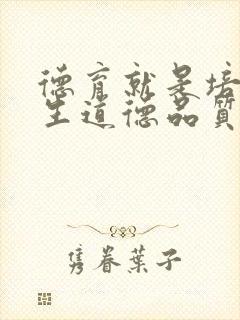 德育就是培
生道德品質
隽眷葉子